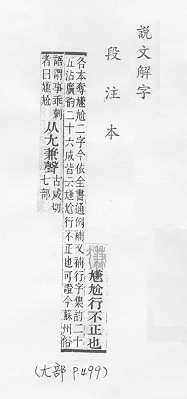 說文解字
段注本
尲尬行不正也
各本奪尲尬二字今依全書通例補又補行字集韵二十
五沾廣韵二十六咸皆云尲尬行不正也可證今蘇州俗
語謂事乖剌
者曰尲尬
从尢兼聲
古咸切
七部
(尢部 P.499)